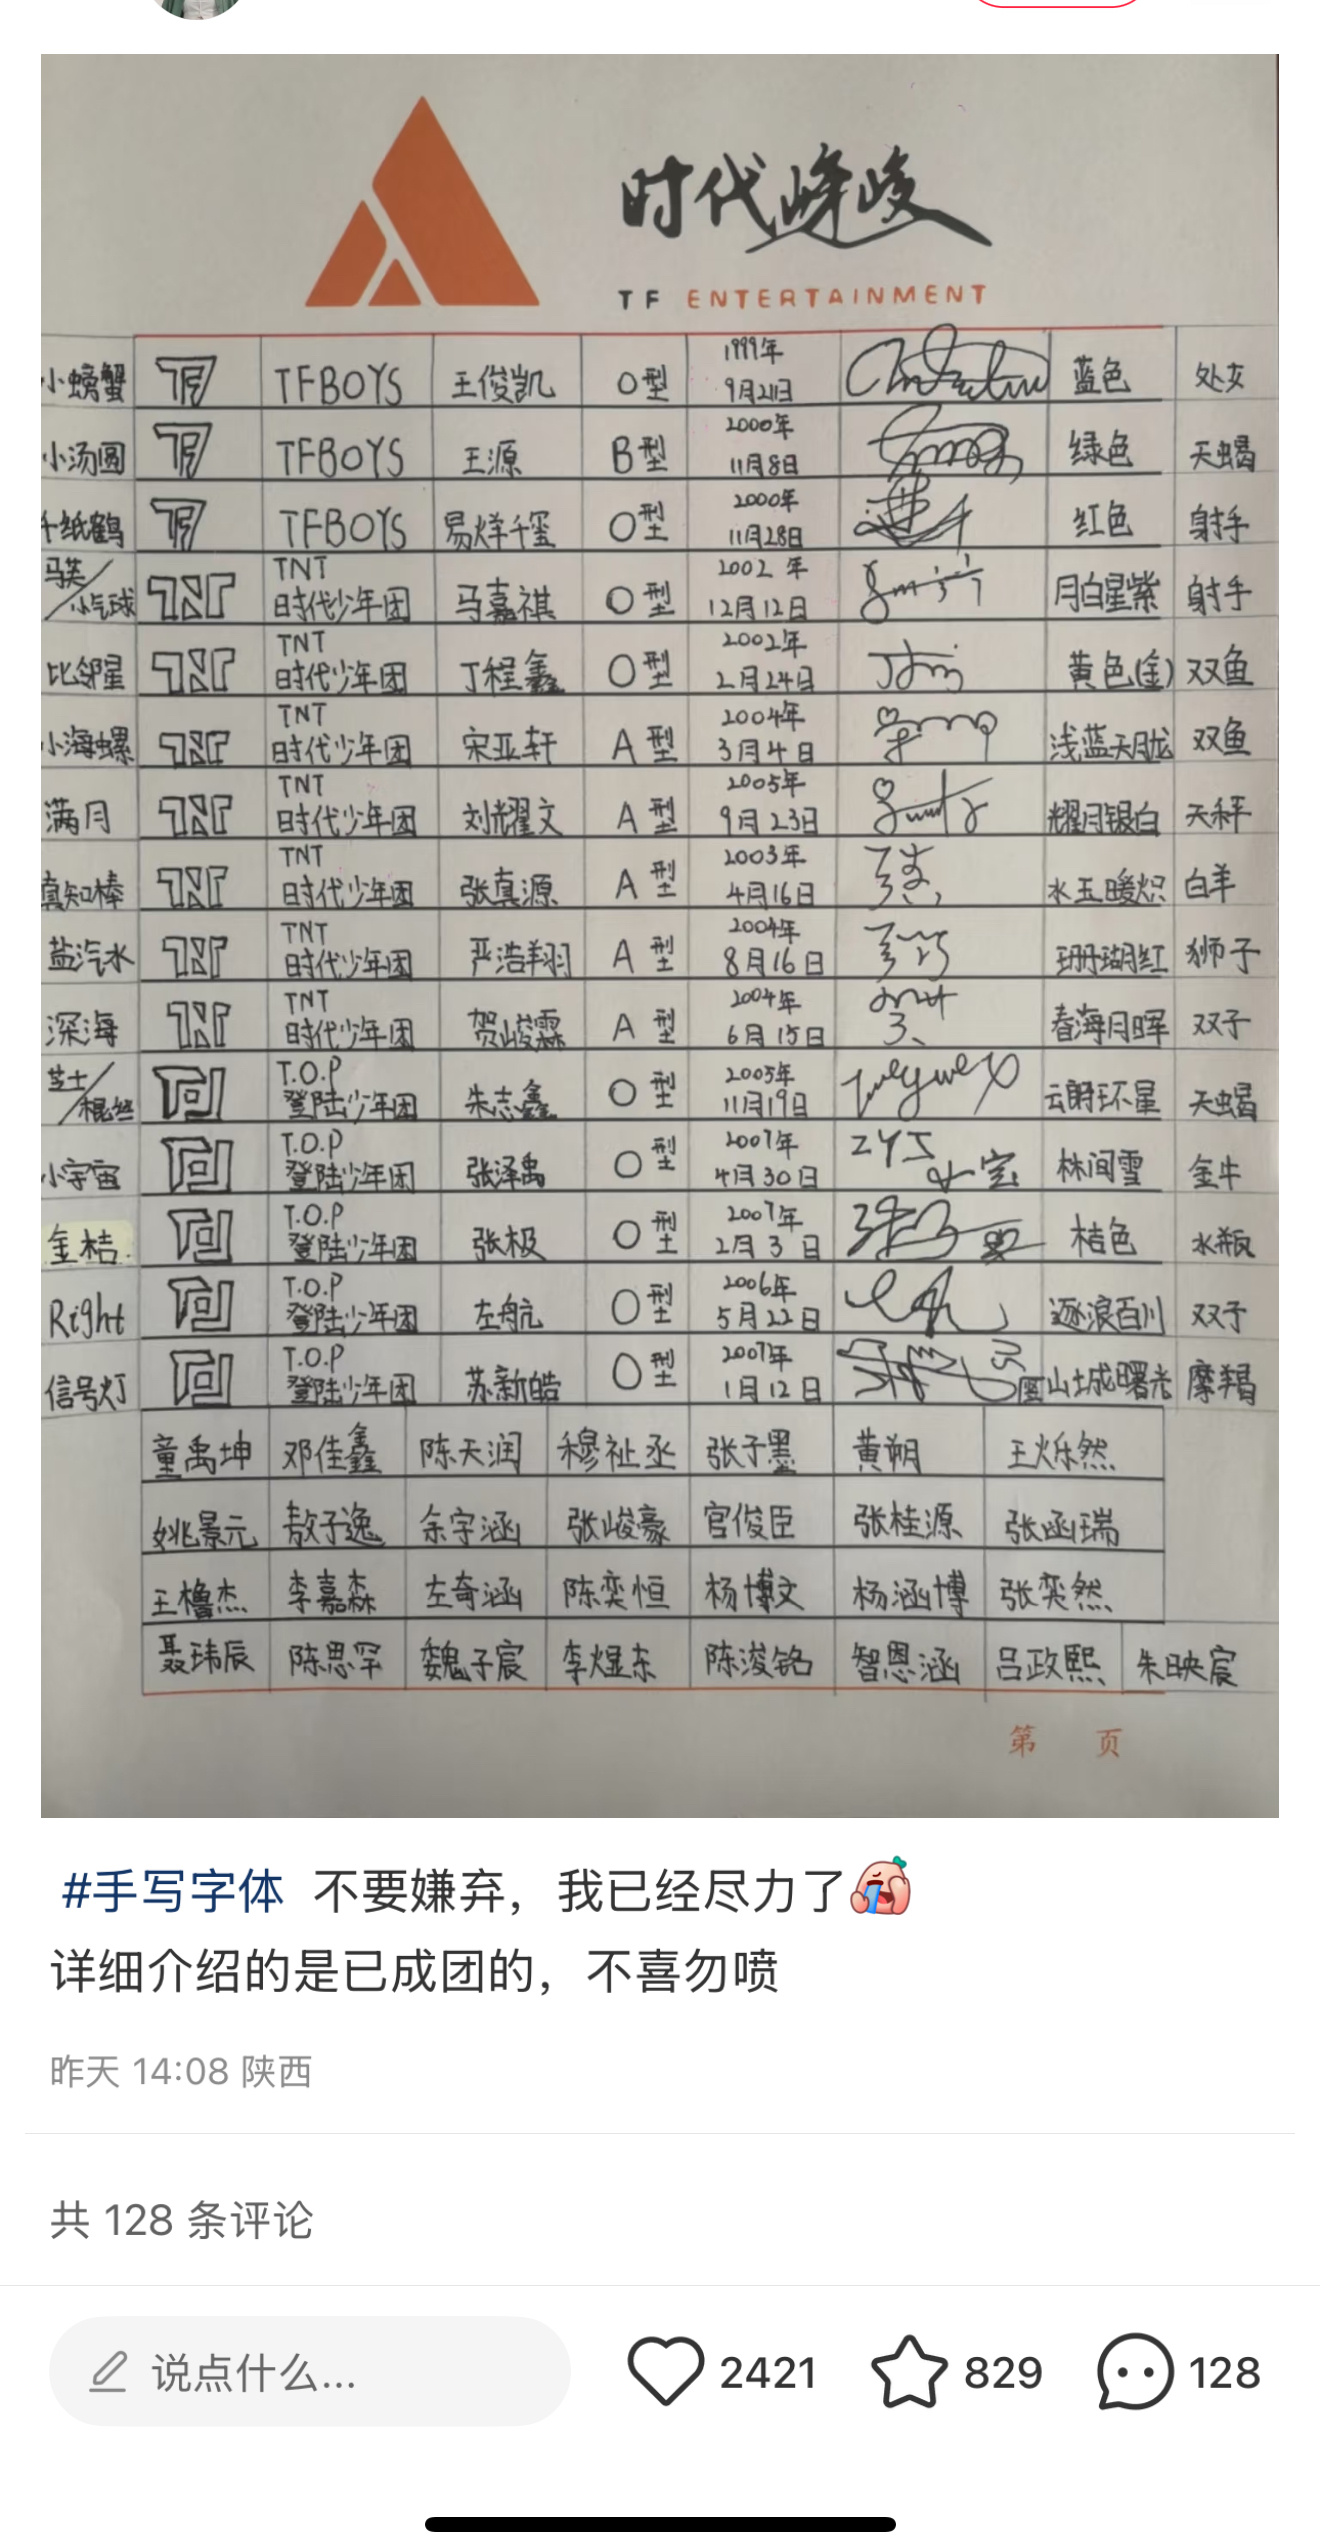 时代峰峻
TF ENTERTAINMENT
小螃蟹 TF TFBOYS 王俊凯 O型 1999年9月21日 蓝色 处女
小汤圆 TF TFBOYS 王源 B型 2000年11月8日 绿色 天蝎
千纸鹤 TF TFBOYS 易烊千玺 O型 2000年11月28日 红色 射手
马芙/小气球 TNT TNT时代少年团 马嘉祺 O型 2002年12月12日 月白星紫 射手
比邻星 TNT TNT时代少年团 丁程鑫 O型 2002年2月24日 黄色(金) 双鱼
小海螺 TNT TNT时代少年团 宋亚轩 A型 2004年3月4日 浅蓝天胧 双鱼
满月 TNT TNT时代少年团 刘耀文 A型 2005年9月23日 耀月银白 天秤
真知棒 TNT TNT时代少年团 张真源 A型 2003年4月16日 水玉暖炽 白羊
盐汽水 TNT TNT时代少年团 严浩翔 A型 2004年8月16日 珊瑚红 狮子
深海 TNT TNT时代少年团 贺峻霖 A型 2004年6月15日 春海月晖 双子
芝士/棍丝 T.O.P登陆少年团 朱志鑫 O型 2005年11月19日 云蔚环星 天蝎
小宇宙 T.O.P登陆少年团 张泽禹 O型 2007年4月30日 ZYJ 小宝 林间雪 金牛
金桔 T.O.P登陆少年团 张极 O型 2007年2月3日 桔色 水瓶
Right T.O.P登陆少年团 左航 O型 2006年5月22日 逐浪百川 双子
信号灯 T.O.P登陆少年团 苏新皓 O型 2007年1月12日 山城曙光 摩羯
童禹坤 邓佳鑫 陈天润 穆祉丞 张子墨 黄朔 王烁然
姚景元 敖子逸 余宇涵 张峻豪 官俊臣 张桂源 张函瑞
王橹杰 李嘉森 左奇涵 陈奕恒 杨博文 杨涵博 张奕然
聂玮辰 陈思罕 魏子宸 李煜东 陈浚铭 智恩涵 吕政熙 朱映宸
第 页
#手写字体 不要嫌弃，我已经尽力了
详细介绍的是已成团的，不喜勿喷
昨天 14:08 陕西
共 128 条评论
说点什么... 2421 829 128